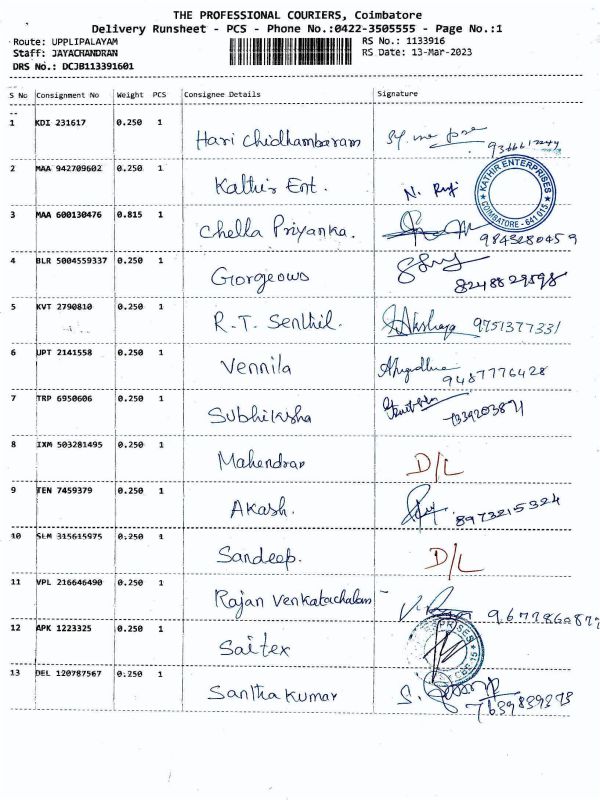 THE PROFESSIONAL COURIERS, Coimbatore
Delivery Runsheet - PCS - Phone No.:0422-3505555 - Page No.:1
Route: UPPLIPALAYAM RS No.: 1133916
Staff: JAYACHANDRAN RS Date: 13-Mar-2023
DRS No.: DCJB113391601
S No Consignment No Weight PCS Consignee Details Signature
1 KDI 231617 0.250 1 Hari Chidhambaram
2 MAA 942709602 0.250 1 Kathir Ent. N. KATHIR ENTERPRISES COIMBATORE - 641 015
3 MAA 600130476 0.815 1 Chella Priyanka. 9843280459
4 BLR 5004559337 0.250 1 Gorgeous 8248829598
5 KVT 2790810 0.250 1 R.T. Senthil. 9751377331
6 UPT 2141558 0.250 1 Vennila 9487776428
7 TRP 6950606 0.250 1 Subhiksha
8 IXM 503281495 0.250 1 Mahendran D/L
9 TEN 7459379 0.250 1 Akash. 8973215324
10 SLM 315615975 0.250 1 Sandeep. D/L
11 VPL 216646490 0.250 1 Rajan Venkatachalam
12 APK 1223325 0.250 1 Saitex
13 DEL 120787567 0.250 1 Santhakumar S.